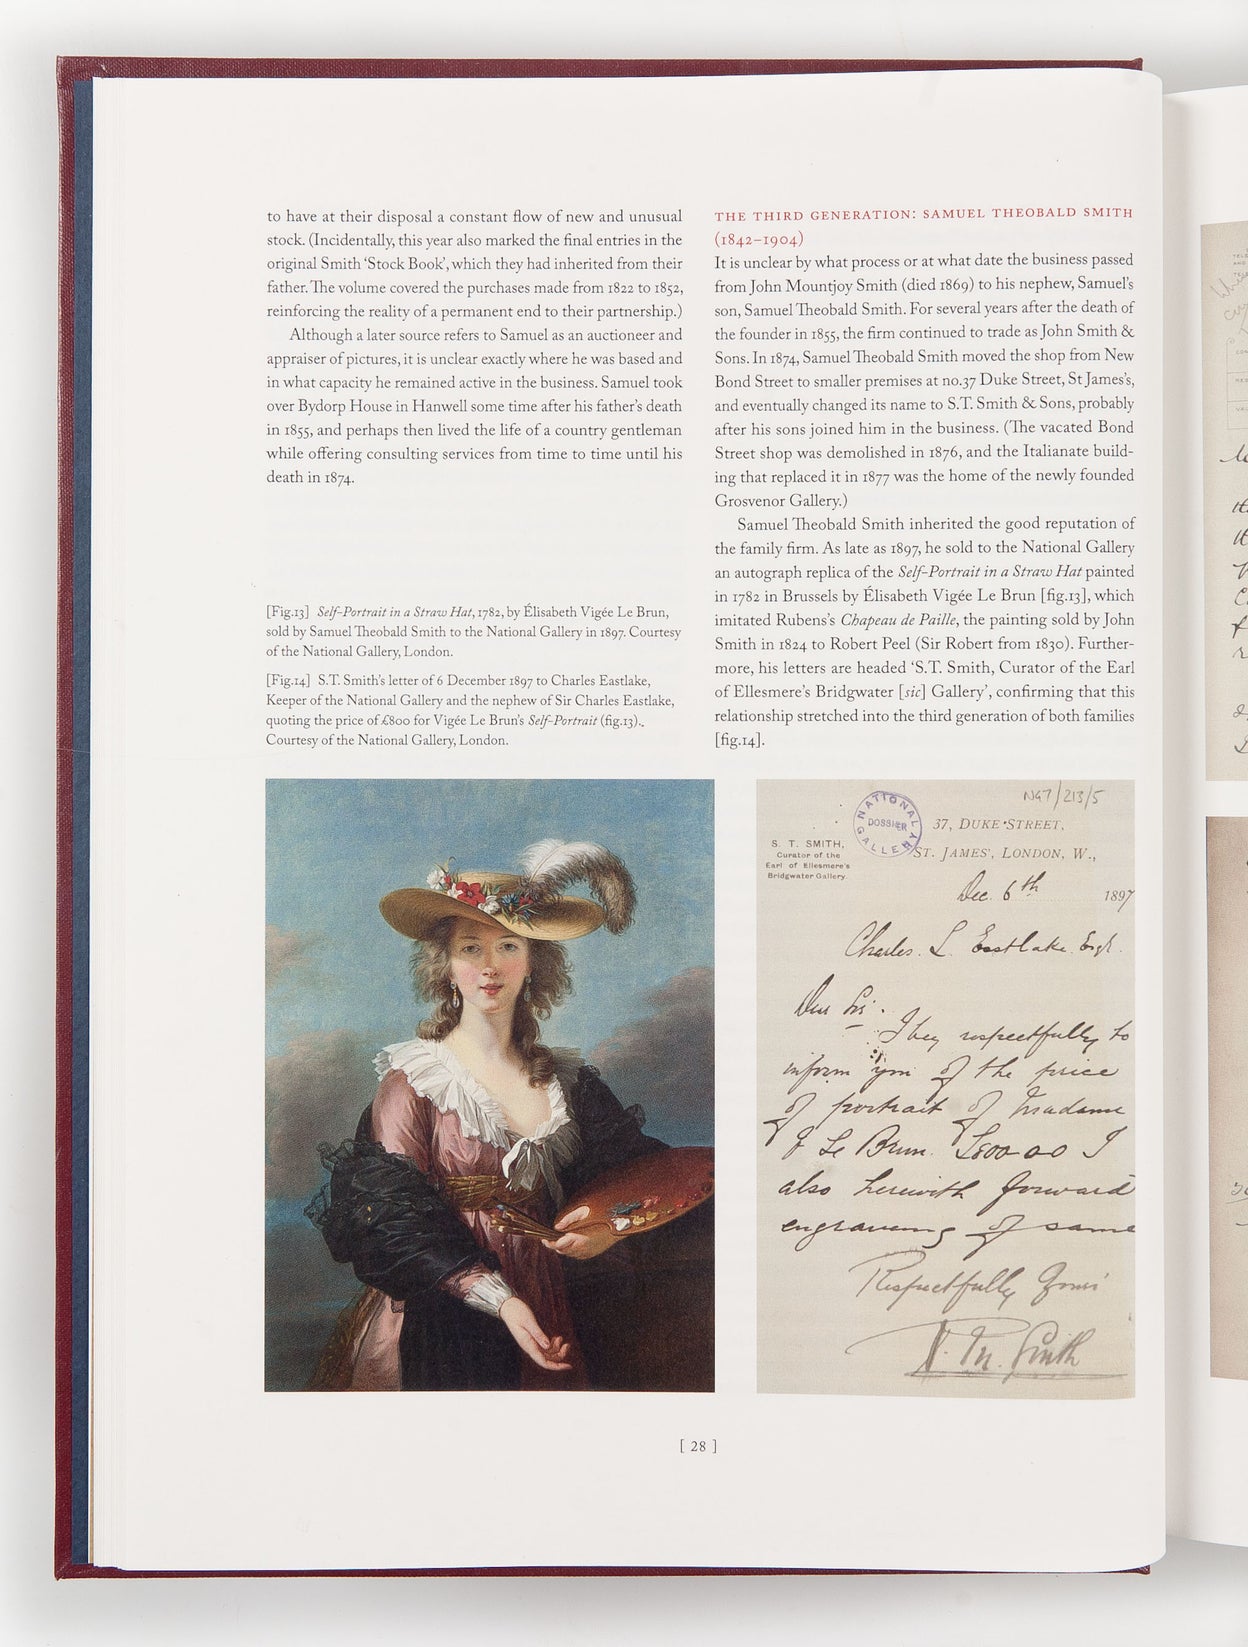 to have at their disposal a constant flow of new and unusual
stock. (Incidentally, this year also marked the final entries in the
original Smith ‘Stock Book’, which they had inherited from their
father. The volume covered the purchases made from 1822 to 1852,
reinforcing the reality of a permanent end to their partnership.)
Although a later source refers to Samuel as an auctioneer and
appraiser of pictures, it is unclear exactly where he was based and
in what capacity he remained active in the business. Samuel took
over Bydorp House in Hanwell some time after his father’s death
in 1855, and perhaps then lived the life of a country gentleman
while offering consulting services from time to time until his
death in 1874.
[Fig.13] Self-Portrait in a Straw Hat, 1782, by Élisabeth Vigée Le Brun,
sold by Samuel Theobald Smith to the National Gallery in 1897. Courtesy
of the National Gallery, London.
[Fig.14] S.T. Smith’s letter of 6 December 1897 to Charles Eastlake,
Keeper of the National Gallery and the nephew of Sir Charles Eastlake,
quoting the price of £800 for Vigée Le Brun’s Self-Portrait (fig.13)..
Courtesy of the National Gallery, London.
THE THIRD GENERATION: SAMUEL THEOBALD SMITH
(1842–1904)
It is unclear by what process or at what date the business passed
from John Mountjoy Smith (died 1869) to his nephew, Samuel’s
son, Samuel Theobald Smith. For several years after the death of
the founder in 1855, the firm continued to trade as John Smith &
Sons. In 1874, Samuel Theobald Smith moved the shop from New
Bond Street to smaller premises at no.37 Duke Street, St James’s,
and eventually changed its name to S.T. Smith & Sons, probably
after his sons joined him in the business. (The vacated Bond
Street shop was demolished in 1876, and the Italianate build-
ing that replaced it in 1877 was the home of the newly founded
Grosvenor Gallery.)
Samuel Theobald Smith inherited the good reputation of
the family firm. As late as 1897, he sold to the National Gallery
an autograph replica of the Self-Portrait in a Straw Hat painted
in 1782 in Brussels by Élisabeth Vigée Le Brun [fig.13], which
imitated Rubens’s Chapeau de Paille, the painting sold by John
Smith in 1824 to Robert Peel (Sir Robert from 1830). Further-
more, his letters are headed ‘S.T. Smith, Curator of the Earl
of Ellesmere’s Bridgwater [sic] Gallery’, confirming that this
relationship stretched into the third generation of both families
[fig.14].
NG7/213/5
NATIONAL GALLERY
DOSSIER
37, DUKE STREET,
ST. JAMES’, LONDON, W.,
S. T. SMITH,
Curator of the
Earl of Ellesmere’s
Bridgwater Gallery.
Dec. 6th 1897
Charles L Eastlake Esqr.
Dear Sir
I beg respectfully to
inform you of the price
of portrait of Madame
Le Brun. £800-0-0 I
also herewith forward
engraving of same
Respectfully Yours
Smith
[ 28 ]